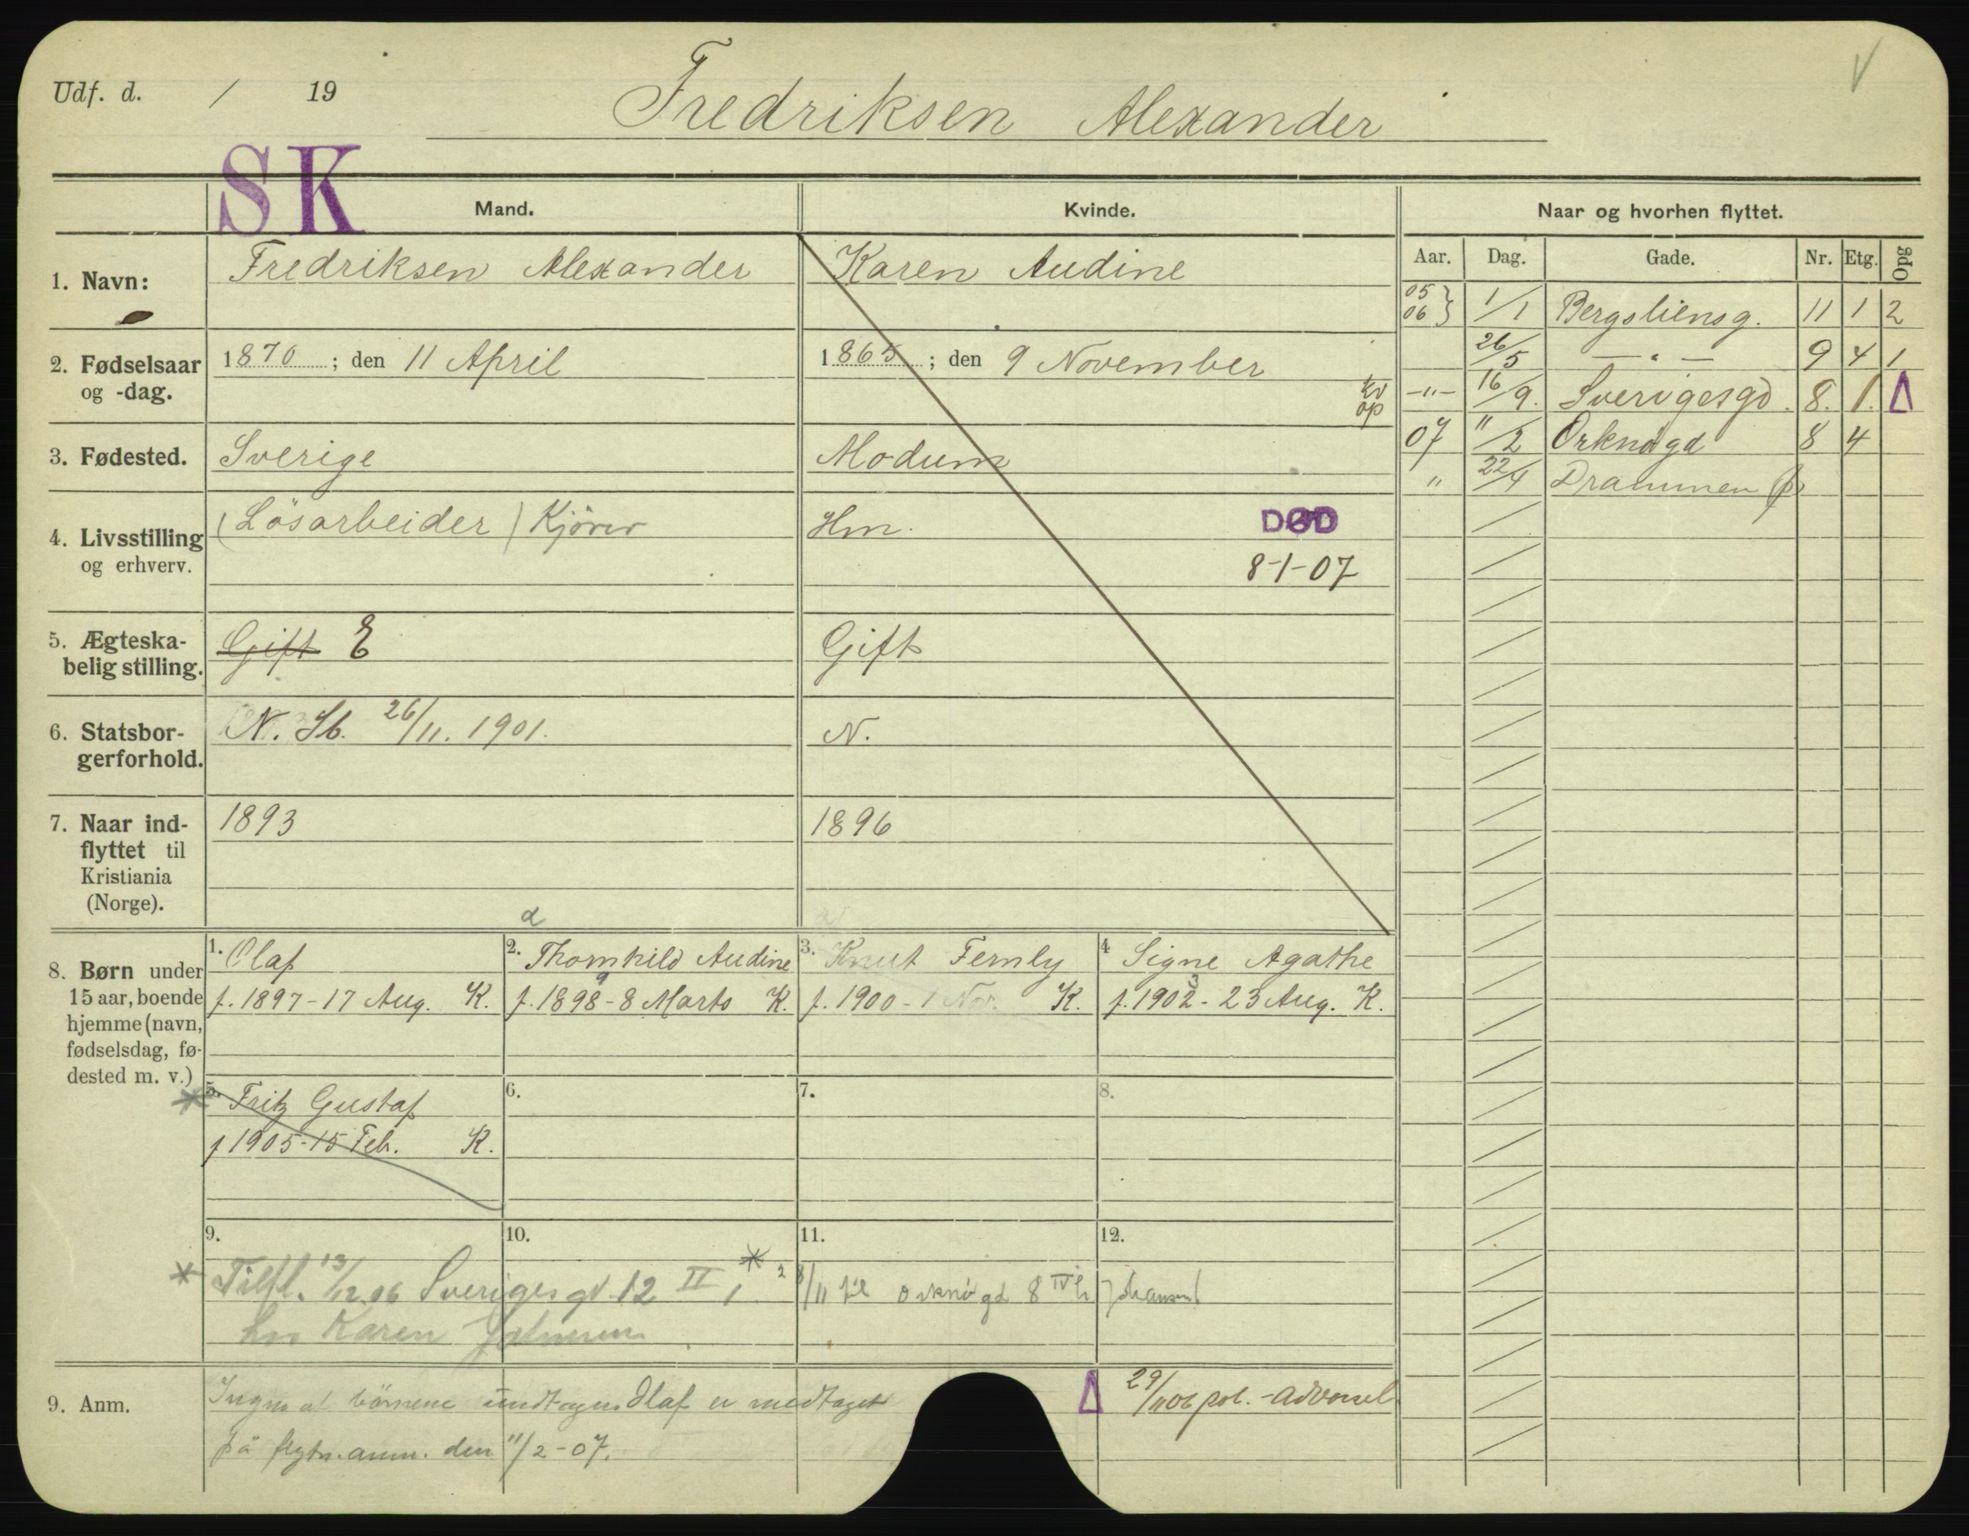 Udf. d. / 19
Fredriksen Alexander
V
SK
Mand. Kvinde. Naar og hvorhen flyttet.
Aar. Dag. Gade. Nr. Etg. Opg
1. Navn: Fredriksen Alexander Karen Audine
05 06 } 1/1 Bergsliensg. 11 1 2
2. Fødselsaar og -dag. 1870; den 11 April 1865; den 9 November
26/5 — " — 9 4 1
kv op
-"- 16/9. Sverigesgd. 8. 1. Δ
07 "/2 Orknögd 8 4
3. Fødested. Sverige Modum
" 22/4 Drammen
4. Livsstilling og erhverv. (Lösarbeider) Kjører Hm. DØD
8-1-07
5. Ægteska-
belig stilling. Gift E Gift
6. Statsbor-
gerforhold. N. Sb. 26/11. 1901. N.
7. Naar ind-
flyttet til
Kristiania
(Norge). 1893 1896
8. Børn under
15 aar, boende
hjemme (navn,
fødselsdag, fø-
dested m. v.)
1. Olaf
f. 1897-17 Aug. K.
2. Thomhild Audine
f. 1898-8 Marts K.
3. Knut Fernly
f. 1900-1 Nov. K.
4 Signe Agathe
f. 1902-23 Aug. K.
5. Fritz Gustaf
f 1905-15 Feb. K.
6.
7.
8.
9.
10.
11.
12.
Tilfl. 13/12.06 Sverigesgd. 12 II 1 * /11 til orknögd 8 IV h Johansen
hos Karen
9. Anm. Ingen af börnene undtagen Olaf er medtaget
på flytn. anm. den 11/2-07.
Δ 29/11 06 pol.-